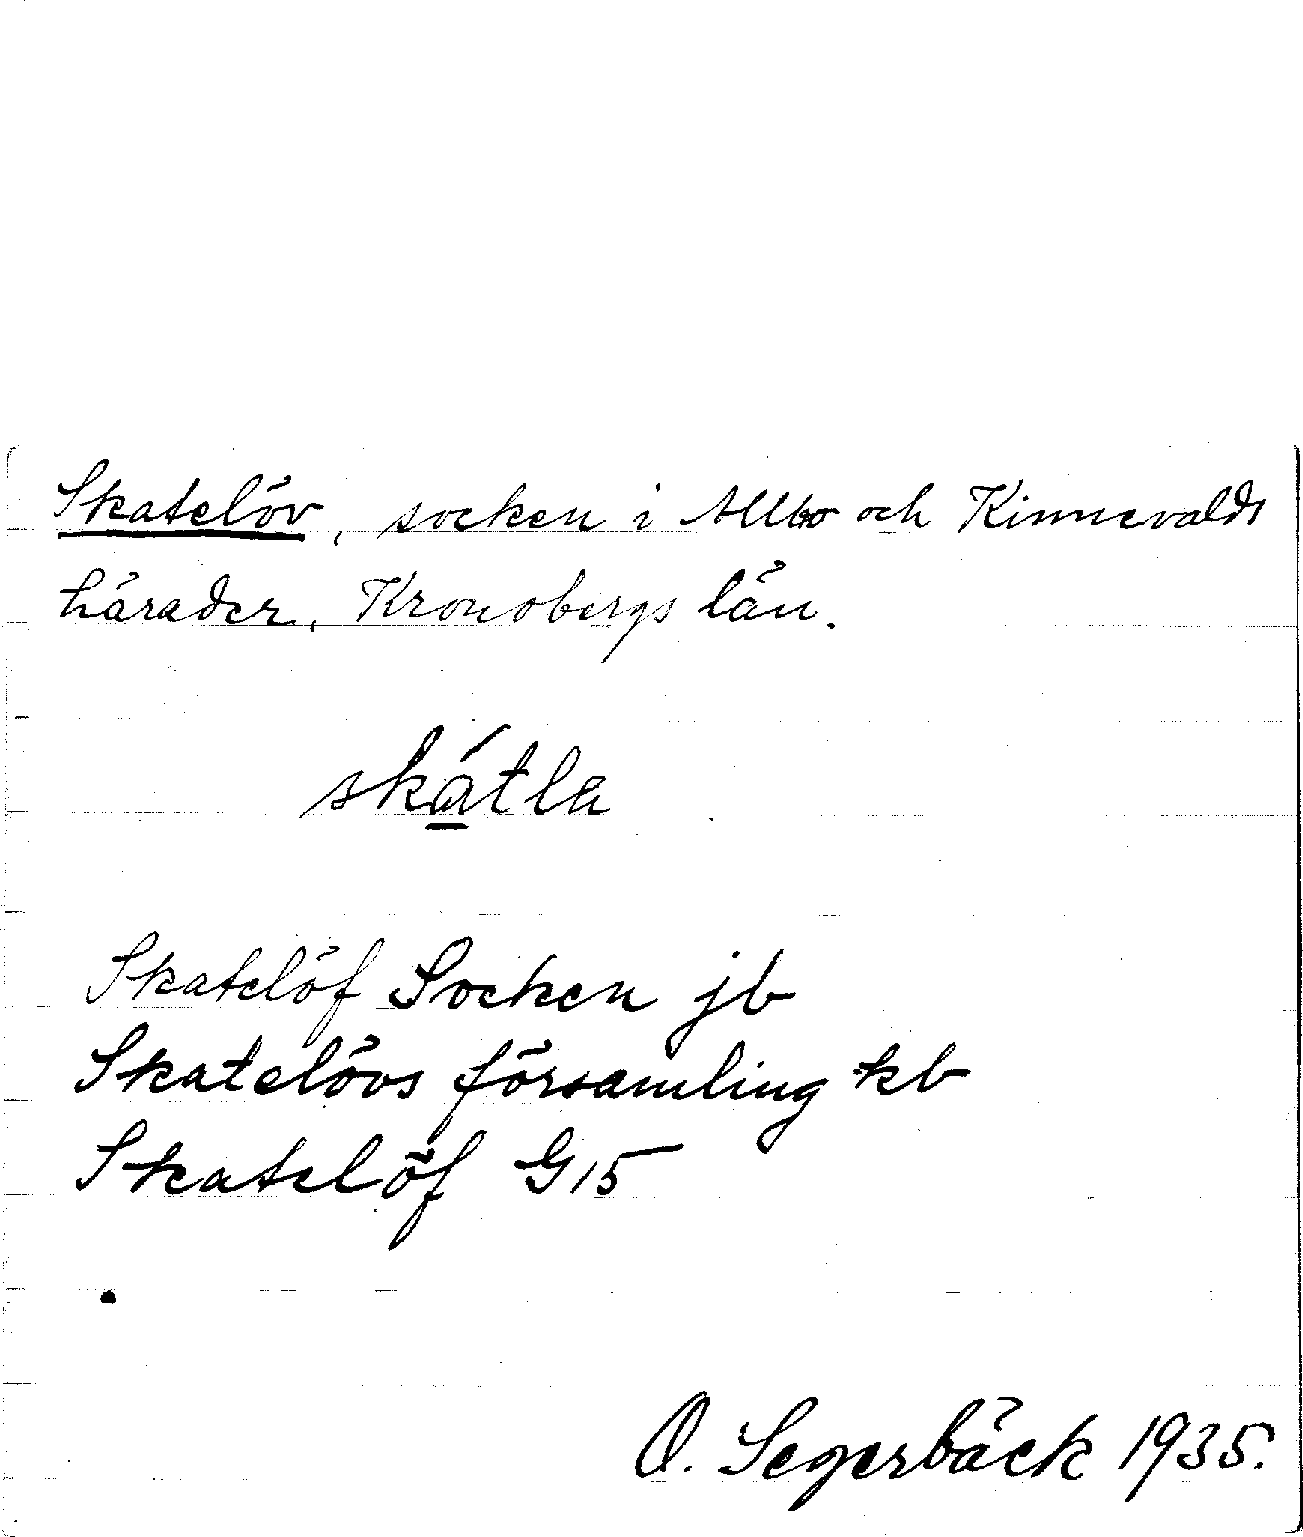 Skatelöv, socken i Allbo och Kinnevalds
härader, Kronobergs län.
ská̱tla
Skatelöf Socken jb
Skatelövs församling kb
Skatelöf G15
O. Segerbäck 1935.